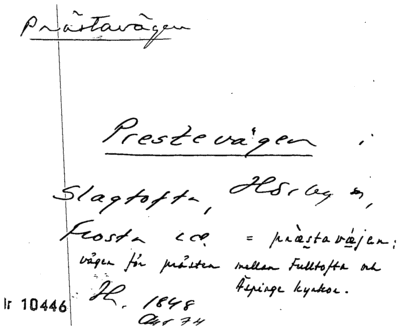 Prästavägen
Prestevägen i
Slagtofta, Hörby sn,
Frosta hd. = präastaväjen:
vägen för prästen mellan Fulltofta och
Äspinge kyrkor.
H. 1848
Ir 10446